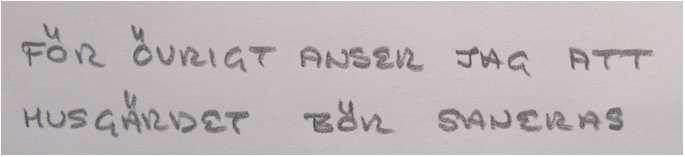 FÖR ÖVRIGT ANSER JAG ATT
HUSGÄRDET BÖR SANERAS